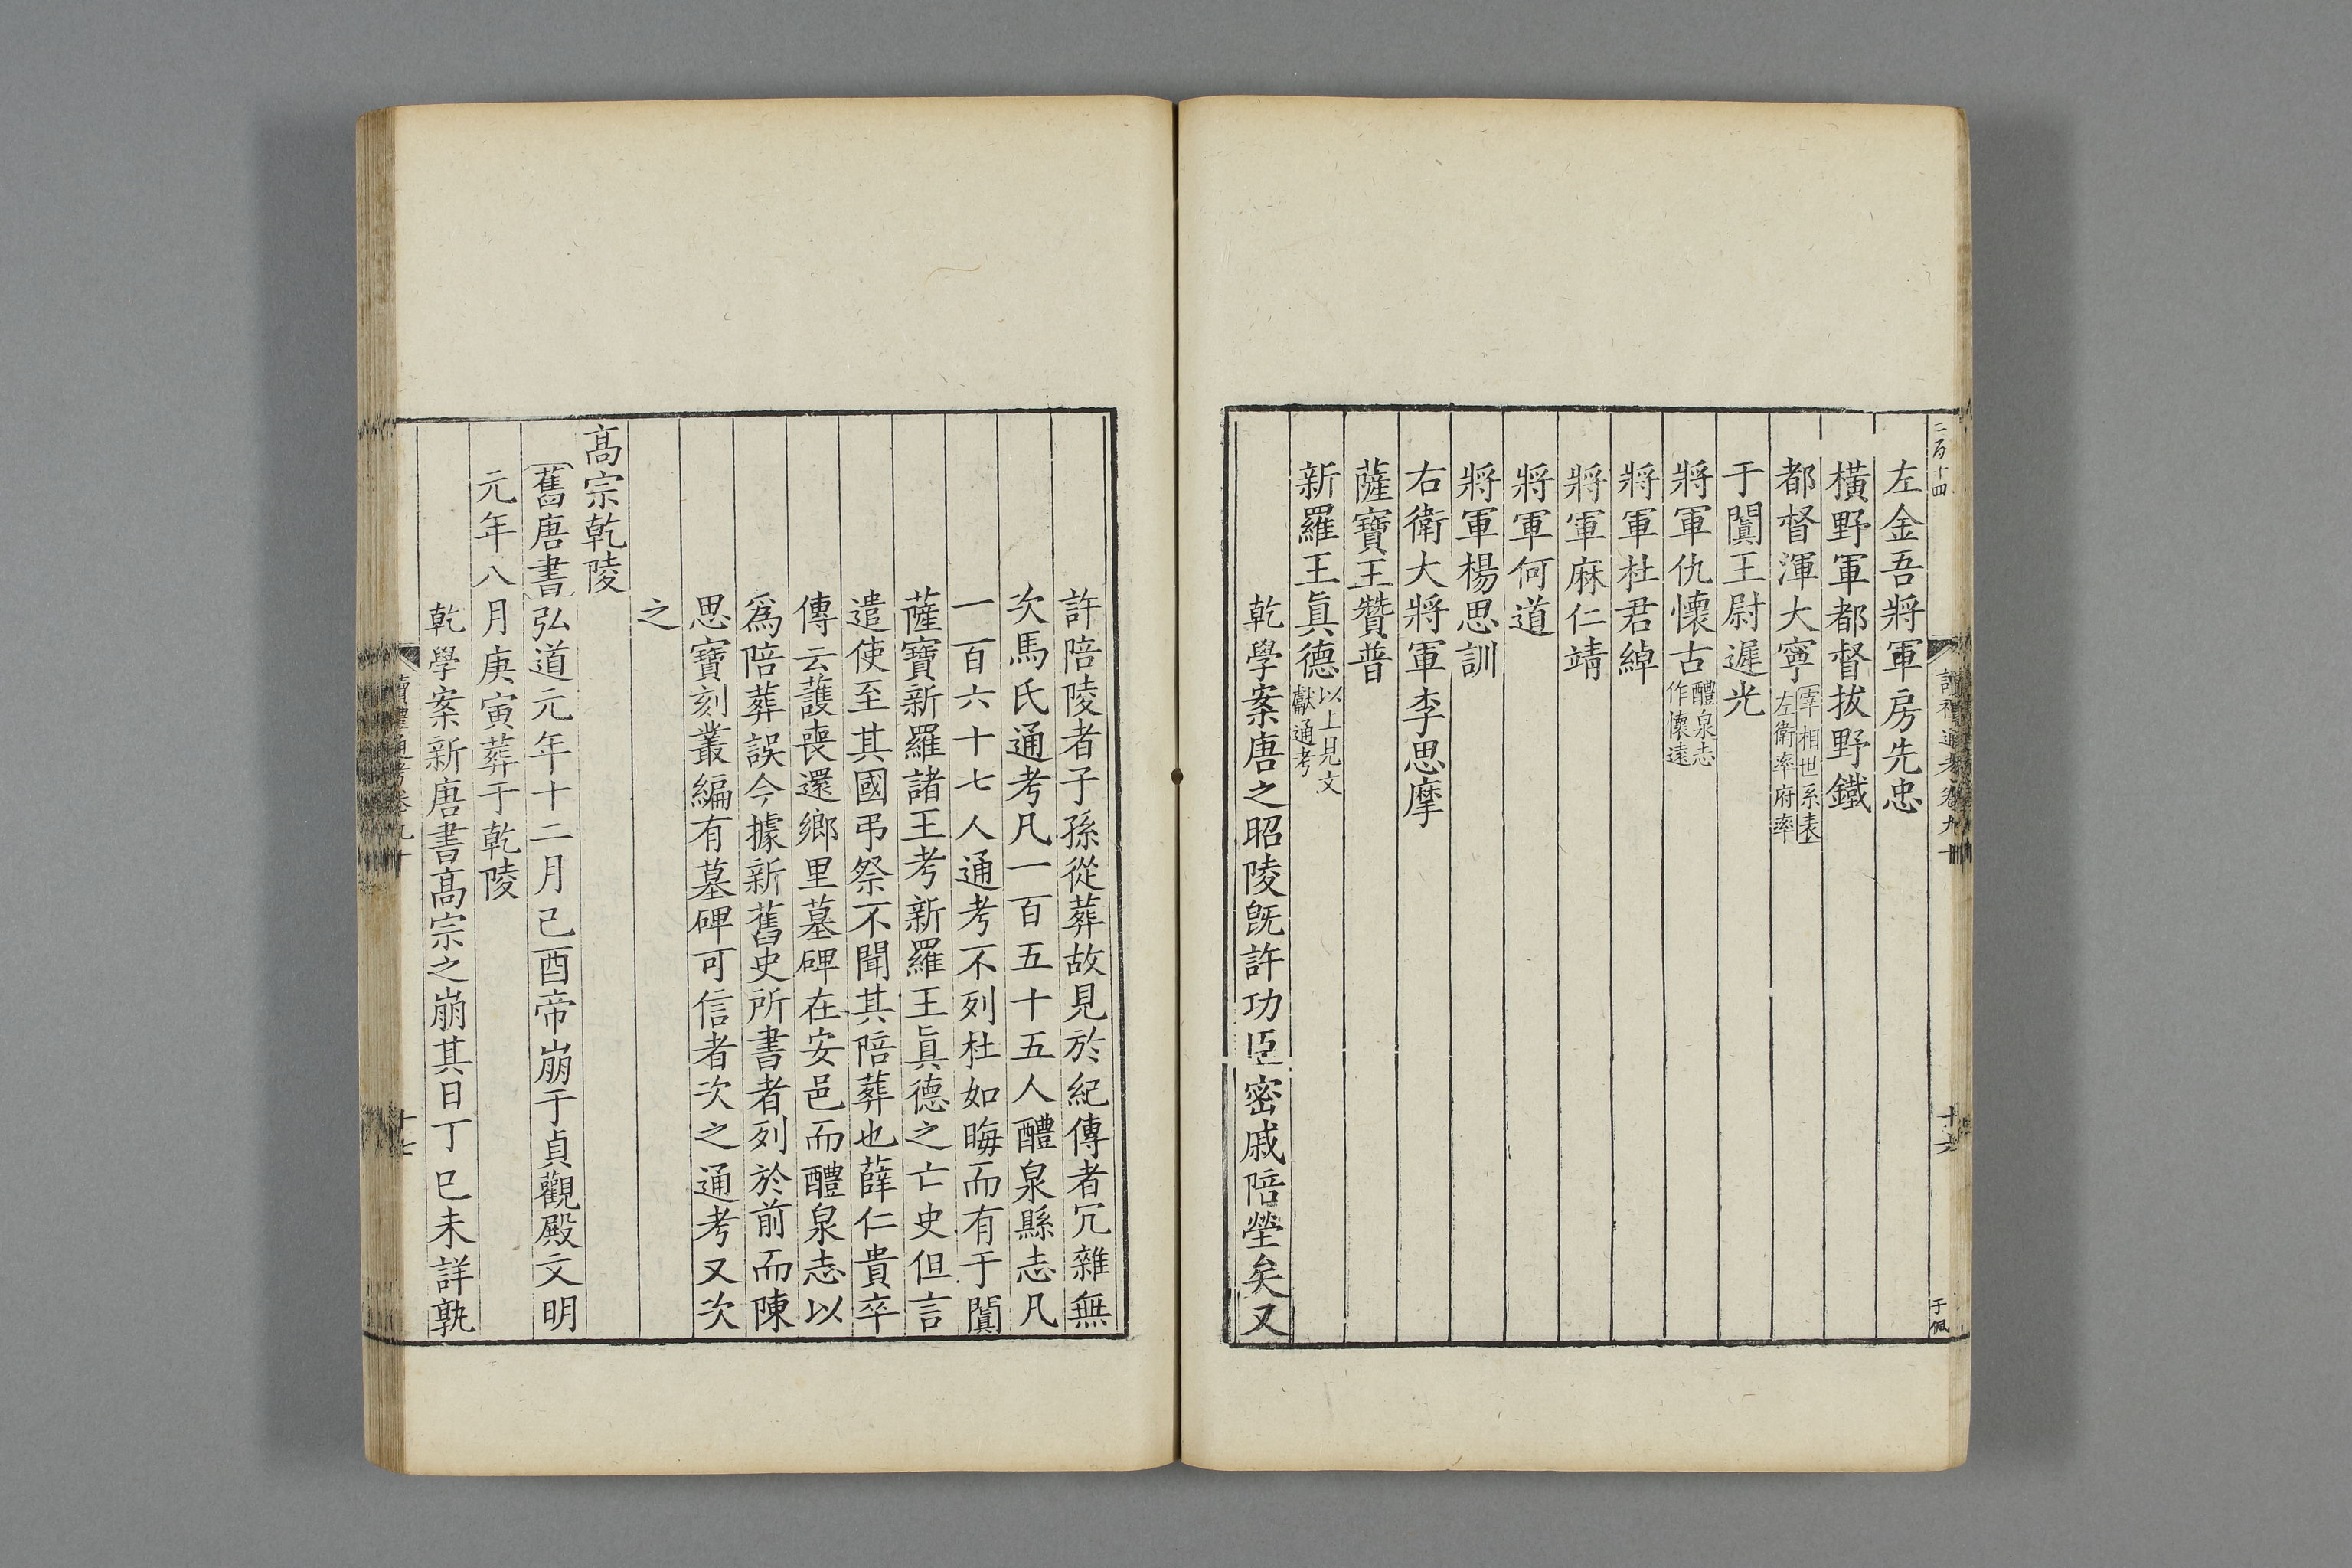 二百十四
左金吾將軍房先忠
橫野軍都督拔野鐵
都督渾大寧宰相世系表左衛率府率
于闐王尉遲光
將軍仇懷古醴泉志作懷遠
將軍杜君綽
將軍麻仁靖
將軍何道
將軍楊思訓
右衛大將軍李思摩
薩寶王贊普
新羅王眞德以上見文獻通考
乾學案唐之昭陵旣許功臣密戚陪塋矣又
許陪陵者子孫從葬故見於紀傳者冗雜無
次馬氏通考凡一百五十五人醴泉縣志凡
一百六十七人通考不列杜如晦而有于闐
薩寶新羅諸王考新羅王眞德之亡史但言
遣使至其國弔祭不聞其陪葬也薛仁貴卒
傳云護喪還鄉里墓碑在安邑而醴泉志以
爲陪葬誤今據新舊史所書者列於前而陳
思寶刻叢編有墓碑可信者次之通考又次
之
高宗乾陵
舊唐書弘道元年十二月己酉帝崩于貞觀殿文明
元年八月庚寅葬于乾陵
乾學案新唐書高宗之崩其日丁巳未詳孰
讀禮通考卷九十
十七
于佩